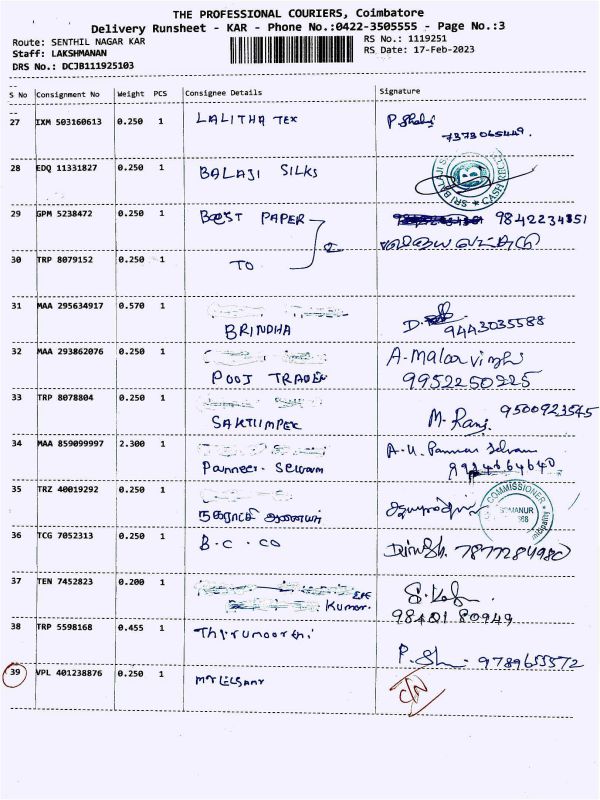 THE PROFESSIONAL COURIERS, Coimbatore
Delivery Runsheet - KAR - Phone No.:0422-3505555 - Page No.:3
Route: SENTHIL NAGAR KAR RS No.: 1119251
Staff: LAKSHMANAN RS Date: 17-Feb-2023
DRS No.: DCJB111925103
S No Consignment No Weight PCS Consignee Details Signature
27 IXM 503160613 0.250 1 LALITHA TEX
7373065449.
28 EDQ 11331827 0.250 1 BALAJI SILKS
29 GPM 5238472 0.250 1 BEST PAPER 9842234351
30 TRP 8079152 0.250 1 TO
31 MAA 295634917 0.570 1
BRINDHA 9443035588
32 MAA 293862076 0.250 1
POOJ TRADER 9952250225
33 TRP 8078804 0.250 1 9500923545
SAKTIIMPEX M. Ranj.
34 MAA 859099997 2.300 1
Panneer. Selvam
35 TRZ 40019292 0.250 1 COMMISSIONER
நகராட்சி ஆணையர் SOMANUR
36 TCG 7052313 0.250 1 B.C.CO
37 TEN 7452823 0.200 1
Kumar.
38 TRP 5598168 0.455 1 Thirumoorthi
P. Sh 9789655572
39 VPL 401238876 0.250 1 C/N